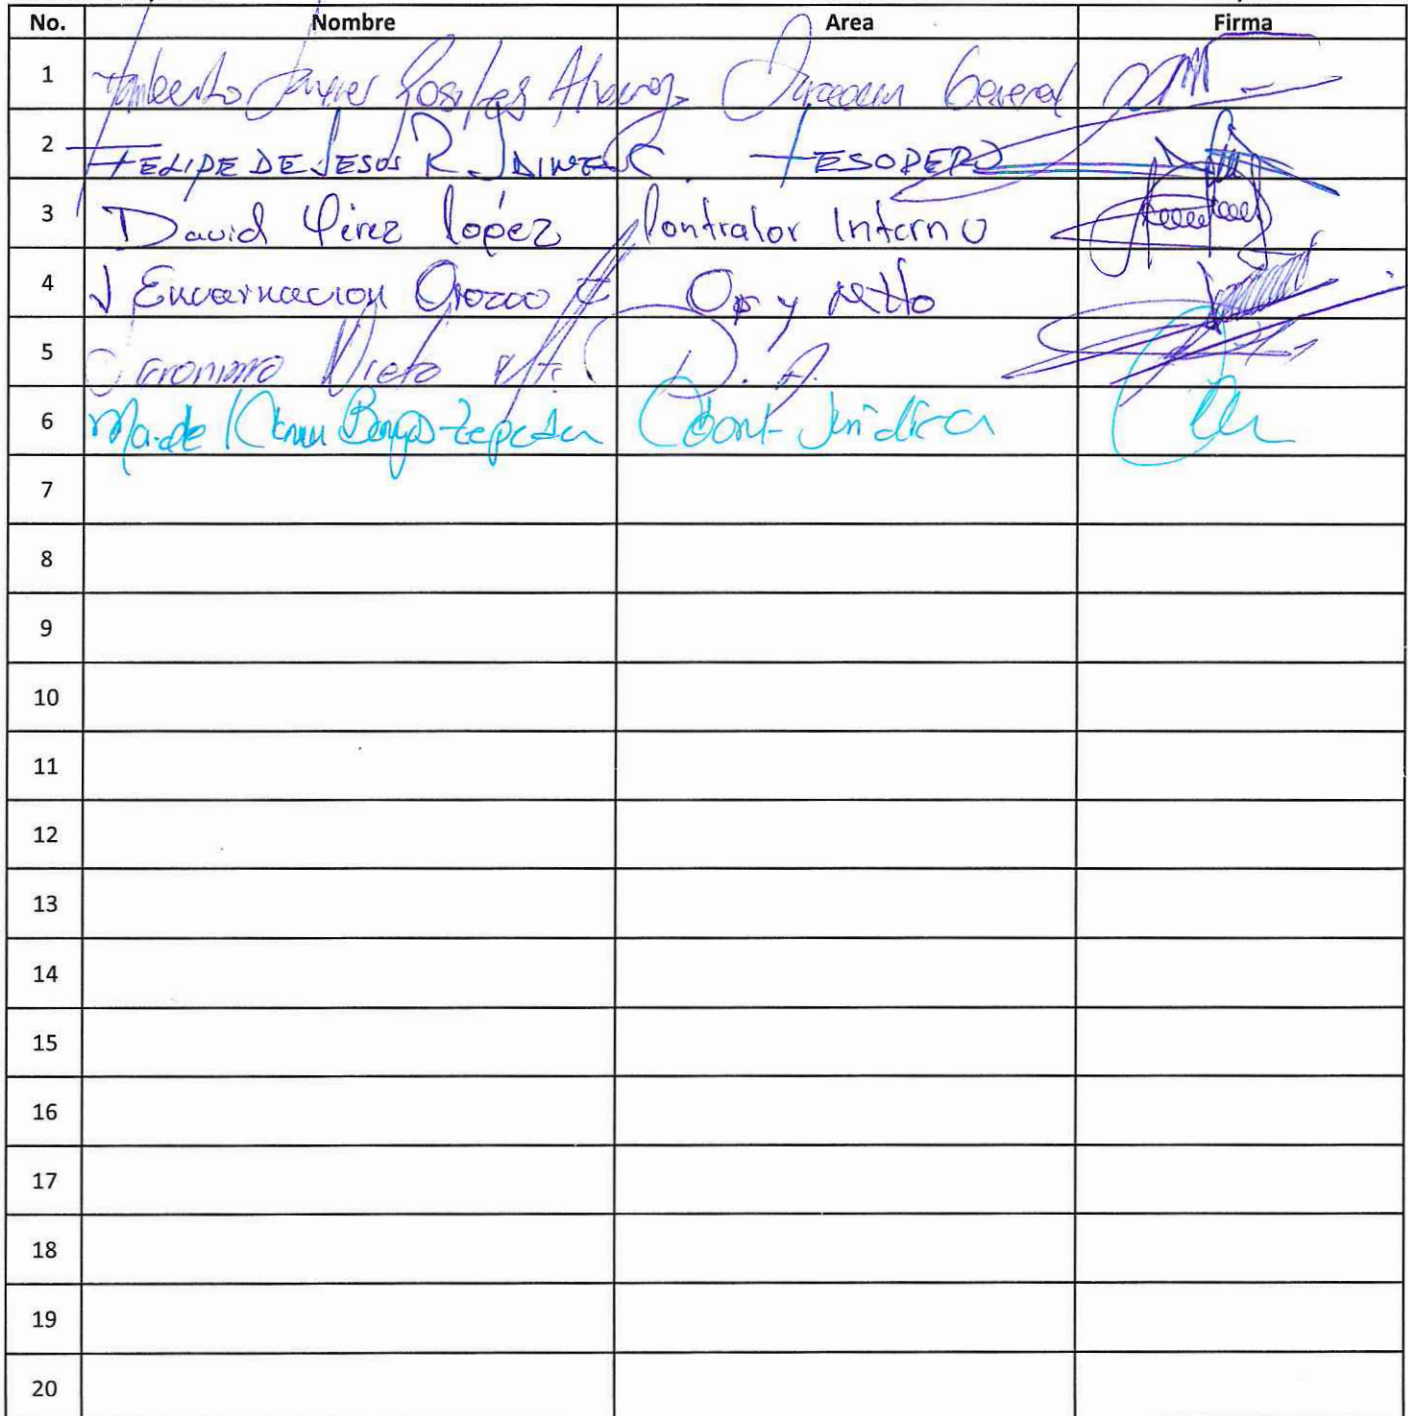 No. Nombre Area Firma
1 Humberto Javier Rosales Alvarez Direccion General
2 FELIPE DE JESUS R. TESORERO
3 David Pérez López Contralor Interno
4 J Encarnacion Orozco Op y
5 Geronimo Nieto D. A.
6 Ma. de Carmen Zepeda Coord Juridica
7
8
9
10
11
12
13
14
15
16
17
18
19
20